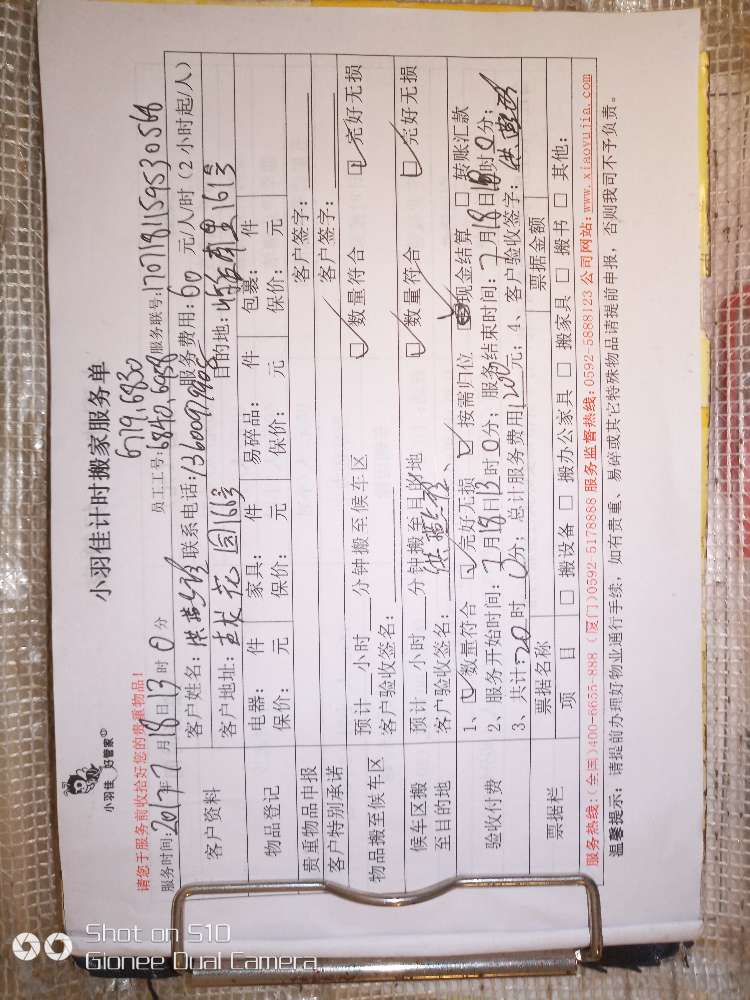 小羽佳 好管家
小羽佳计时搬家服务单
请您于服务前收拾好您的贵重物品!
6719,6830
服务时间:2017年7月18日13时0分 员工工号:6840,6958 服务联号:170718115953056
客户资料 客户姓名: 联系电话:13600979905 服务费用:60元/人/时(2小时起/人)
客户地址: 花园166号 目的地: 1613
物品登记 电器: 件 家具: 件 易碎品: 件 包裹: 件
保价: 元 保价: 元 保价: 元 保价: 元
贵重物品申报 客户签字:
客户特别承诺 客户签字:
物品搬至候车区 预计 小时 分钟搬至候车区 数量符合 完好无损
客户验收签名:
候车区搬至目的地 预计 小时 分钟搬至目的地 数量符合 完好无损
客户验收签名:
验收付费 1、 数量符合 完好无损 按需归位 现金结算 转账汇款
2、服务开始时间:7月18日13时0分;服务结束时间:7月18日 时0分;
3、共计:20时0分;总计服务费用1200元;4、客户验收签字:
票据栏 票据名称 票据金额
项 目 搬设备 搬办公家具 搬家具 搬书 其他:
服务热线:(全国)400-6655-888 (厦门)0592-5178888 服务监督热线:0592-5888123 公司网站:www.xiaoyujia.com
温馨提示:请提前办理好物业通行手续,如有贵重、易碎或其它特殊物品请提前申报,否则我司不予负责。
Shot on S10
Gionee Dual Camera